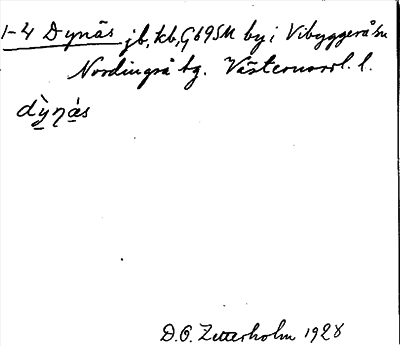 1-4 Dynäs jb, kb, Gb95M by i Vibyggerå sn
Nordingrå tg. Västernorrl. l.
dỳnás
D.O. Zetterholm 1928